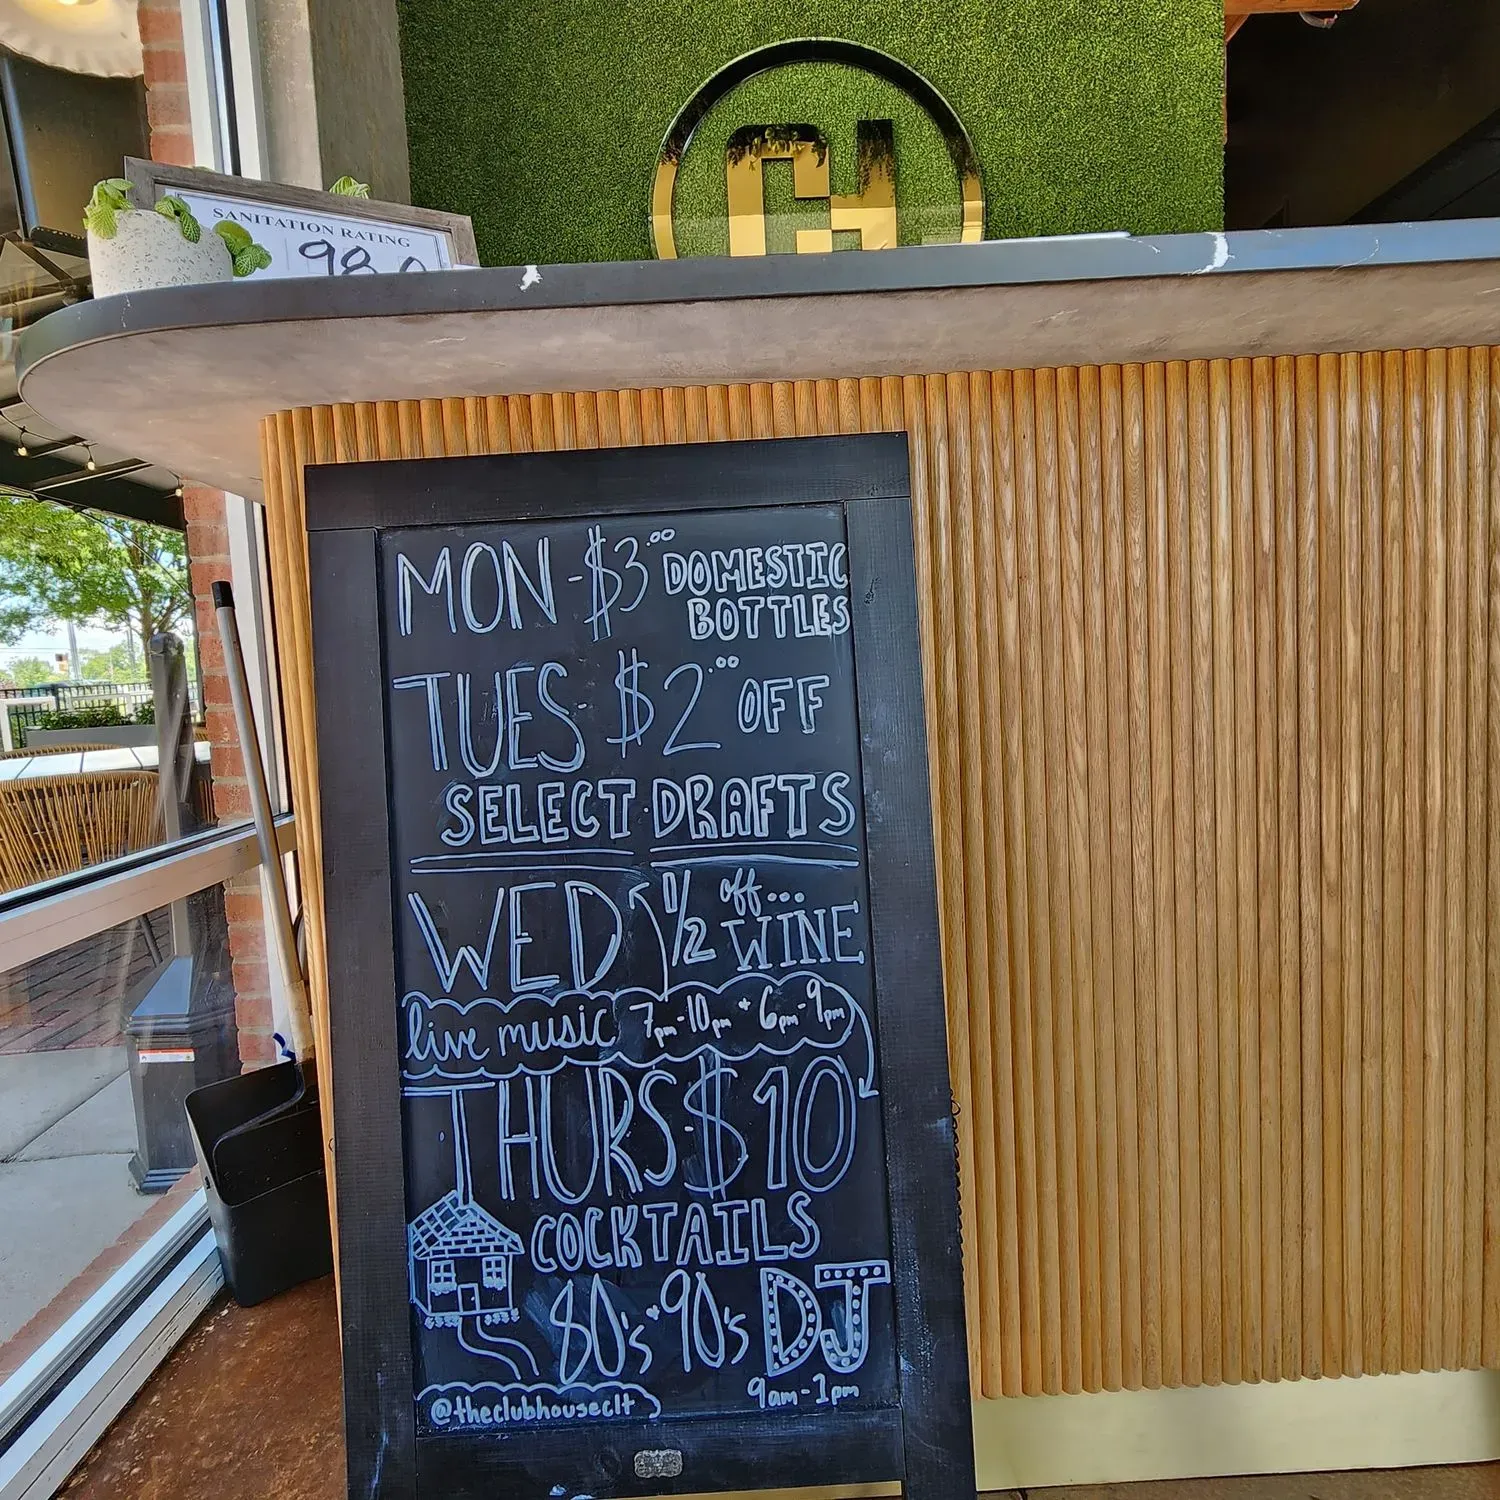 CH
SANITATION RATING
98.0
MON - $3.00 DOMESTIC
BOTTLES
TUES - $2.00 OFF
SELECT DRAFTS
WED 1/2 off...
WINE
live music 7pm-10pm + 6pm-9pm
THURS - $10
COCKTAILS
80's + 90's DJ
9am-1pm
@theclubhouseclt